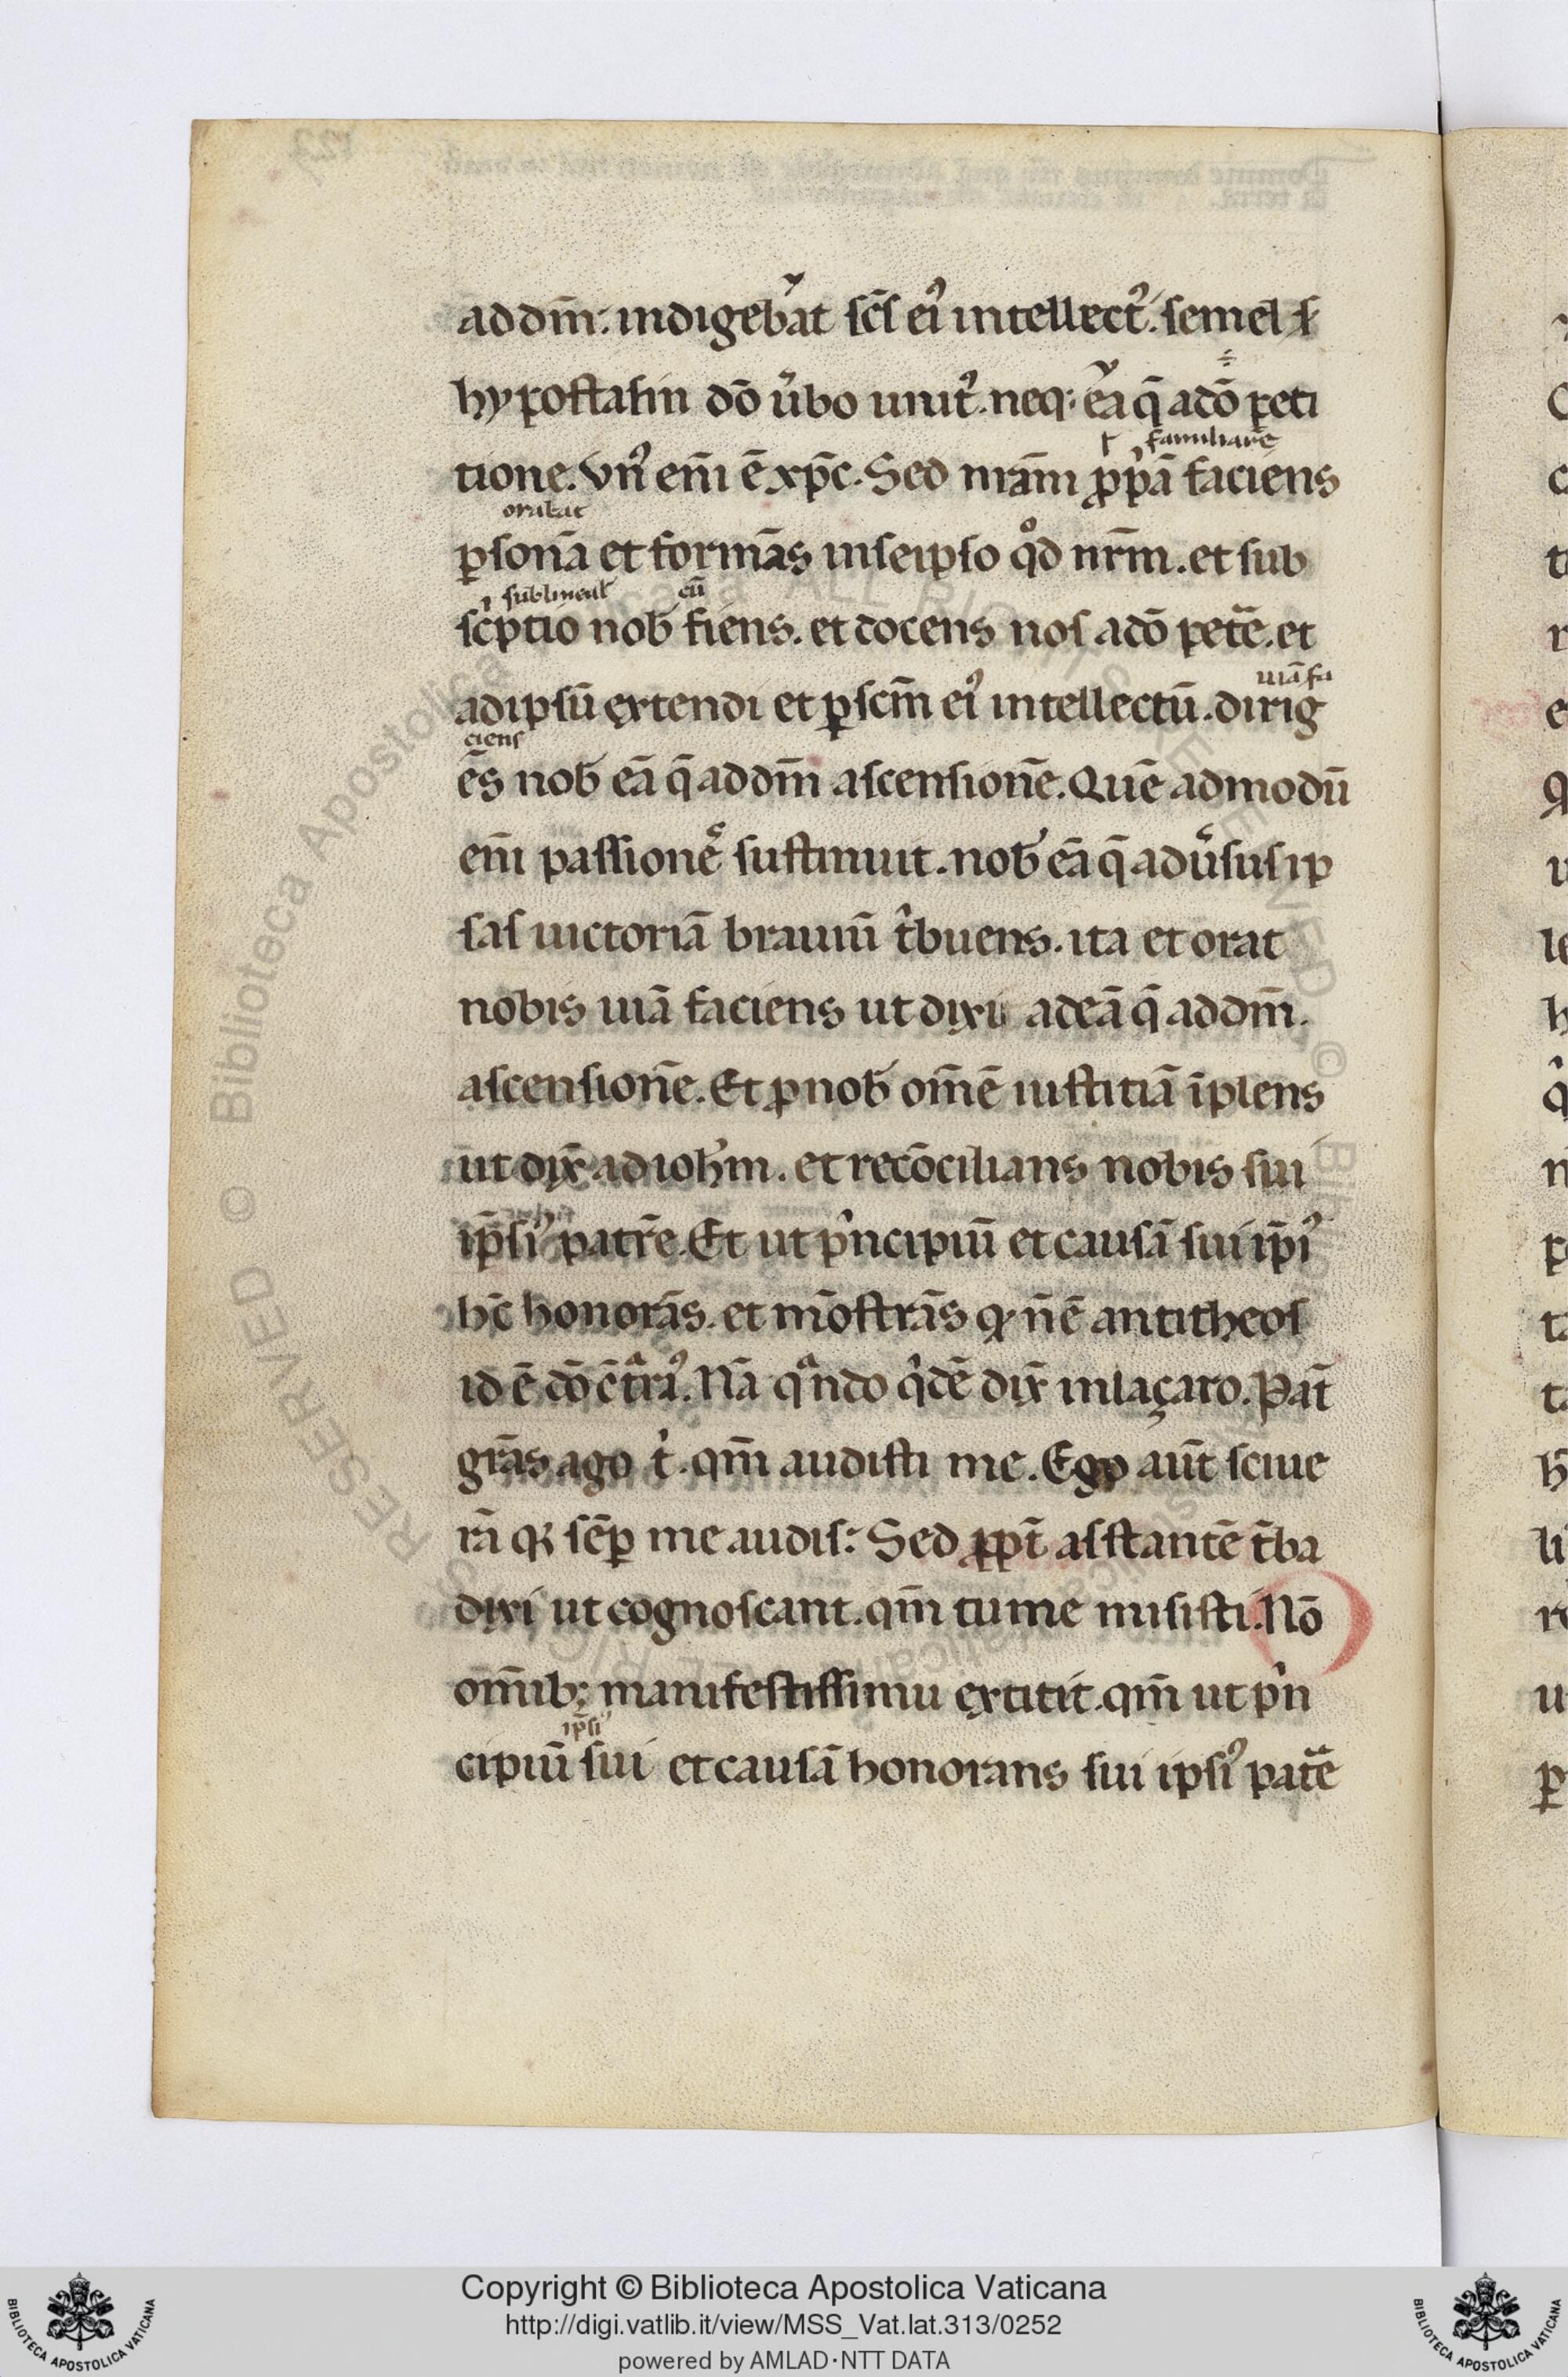 addm̄. indigebat sc̄s ei᾽ intellect᾽. semel ſ
hypostasin dō ūbo unit᾽. neq; ēa q̄ a dō peti
familiarē
tione. Vn᾽ em̄ ē xp̄c. Sed nr̄am ꝓpā faciens
orabat
ꝑsonā et formās inseipso qͦd nr̄m. et sub
sublimatꝰ eū
scͥptio nob̄ fiens. et docens nos a dō petē. et
uiā fa
adipsū extendi et ꝑ scm̄ ei᾽ intellectū. dirig
ciens
ēs nob̄ eā q̄ addm̄ ascensionē. Quē admodū
em̄ passionē sustinuit. nob̄ eā q̄ adūsus ip
sas uictoriā brauiū tͥbuens. ita et orat
nobis uiā faciens ut dixi adeā q̄ addm̄.
ascensionē. Et ꝓ nob̄ om̄ē iustitiā īplens
ut dix̄ ad ioh̄m. et recōcilians nobis sui
ip̄si᾽ patr̄e. Et ut pͥncipiū et causā sui ip̄i᾽
hc̄ honorās. et mōstrās ꝙ n̄ ē antitheos
id ē dō cͣtri᾽. Nā qͣndo qͥdē dix̄ inlaçaro. Pat̄
gr̄as ago tͥ. qm̄ audisti me. Ego aūt sciue
rā ꝙ sēꝑ me audis: Sed ꝓpt̄ astantē t̄ba
dixi ut cognoscant. qm̄ tume misisti. Nō
om̄ib; manifestissimu extitit. qm̄ ut pͥn
ip̄si᾽
cipiū sui et causā honorans sui ipsi᾽ patͬē
Copyright © Biblioteca Apostolica Vaticana
http://digi.vatlib.it/view/MSS_Vat.lat.313/0252
powered by AMLAD·NTT DATA
BIBLIOTECA APOSTOLICA VATICANA
BIBLIOTECA APOSTOLICA VATICANA